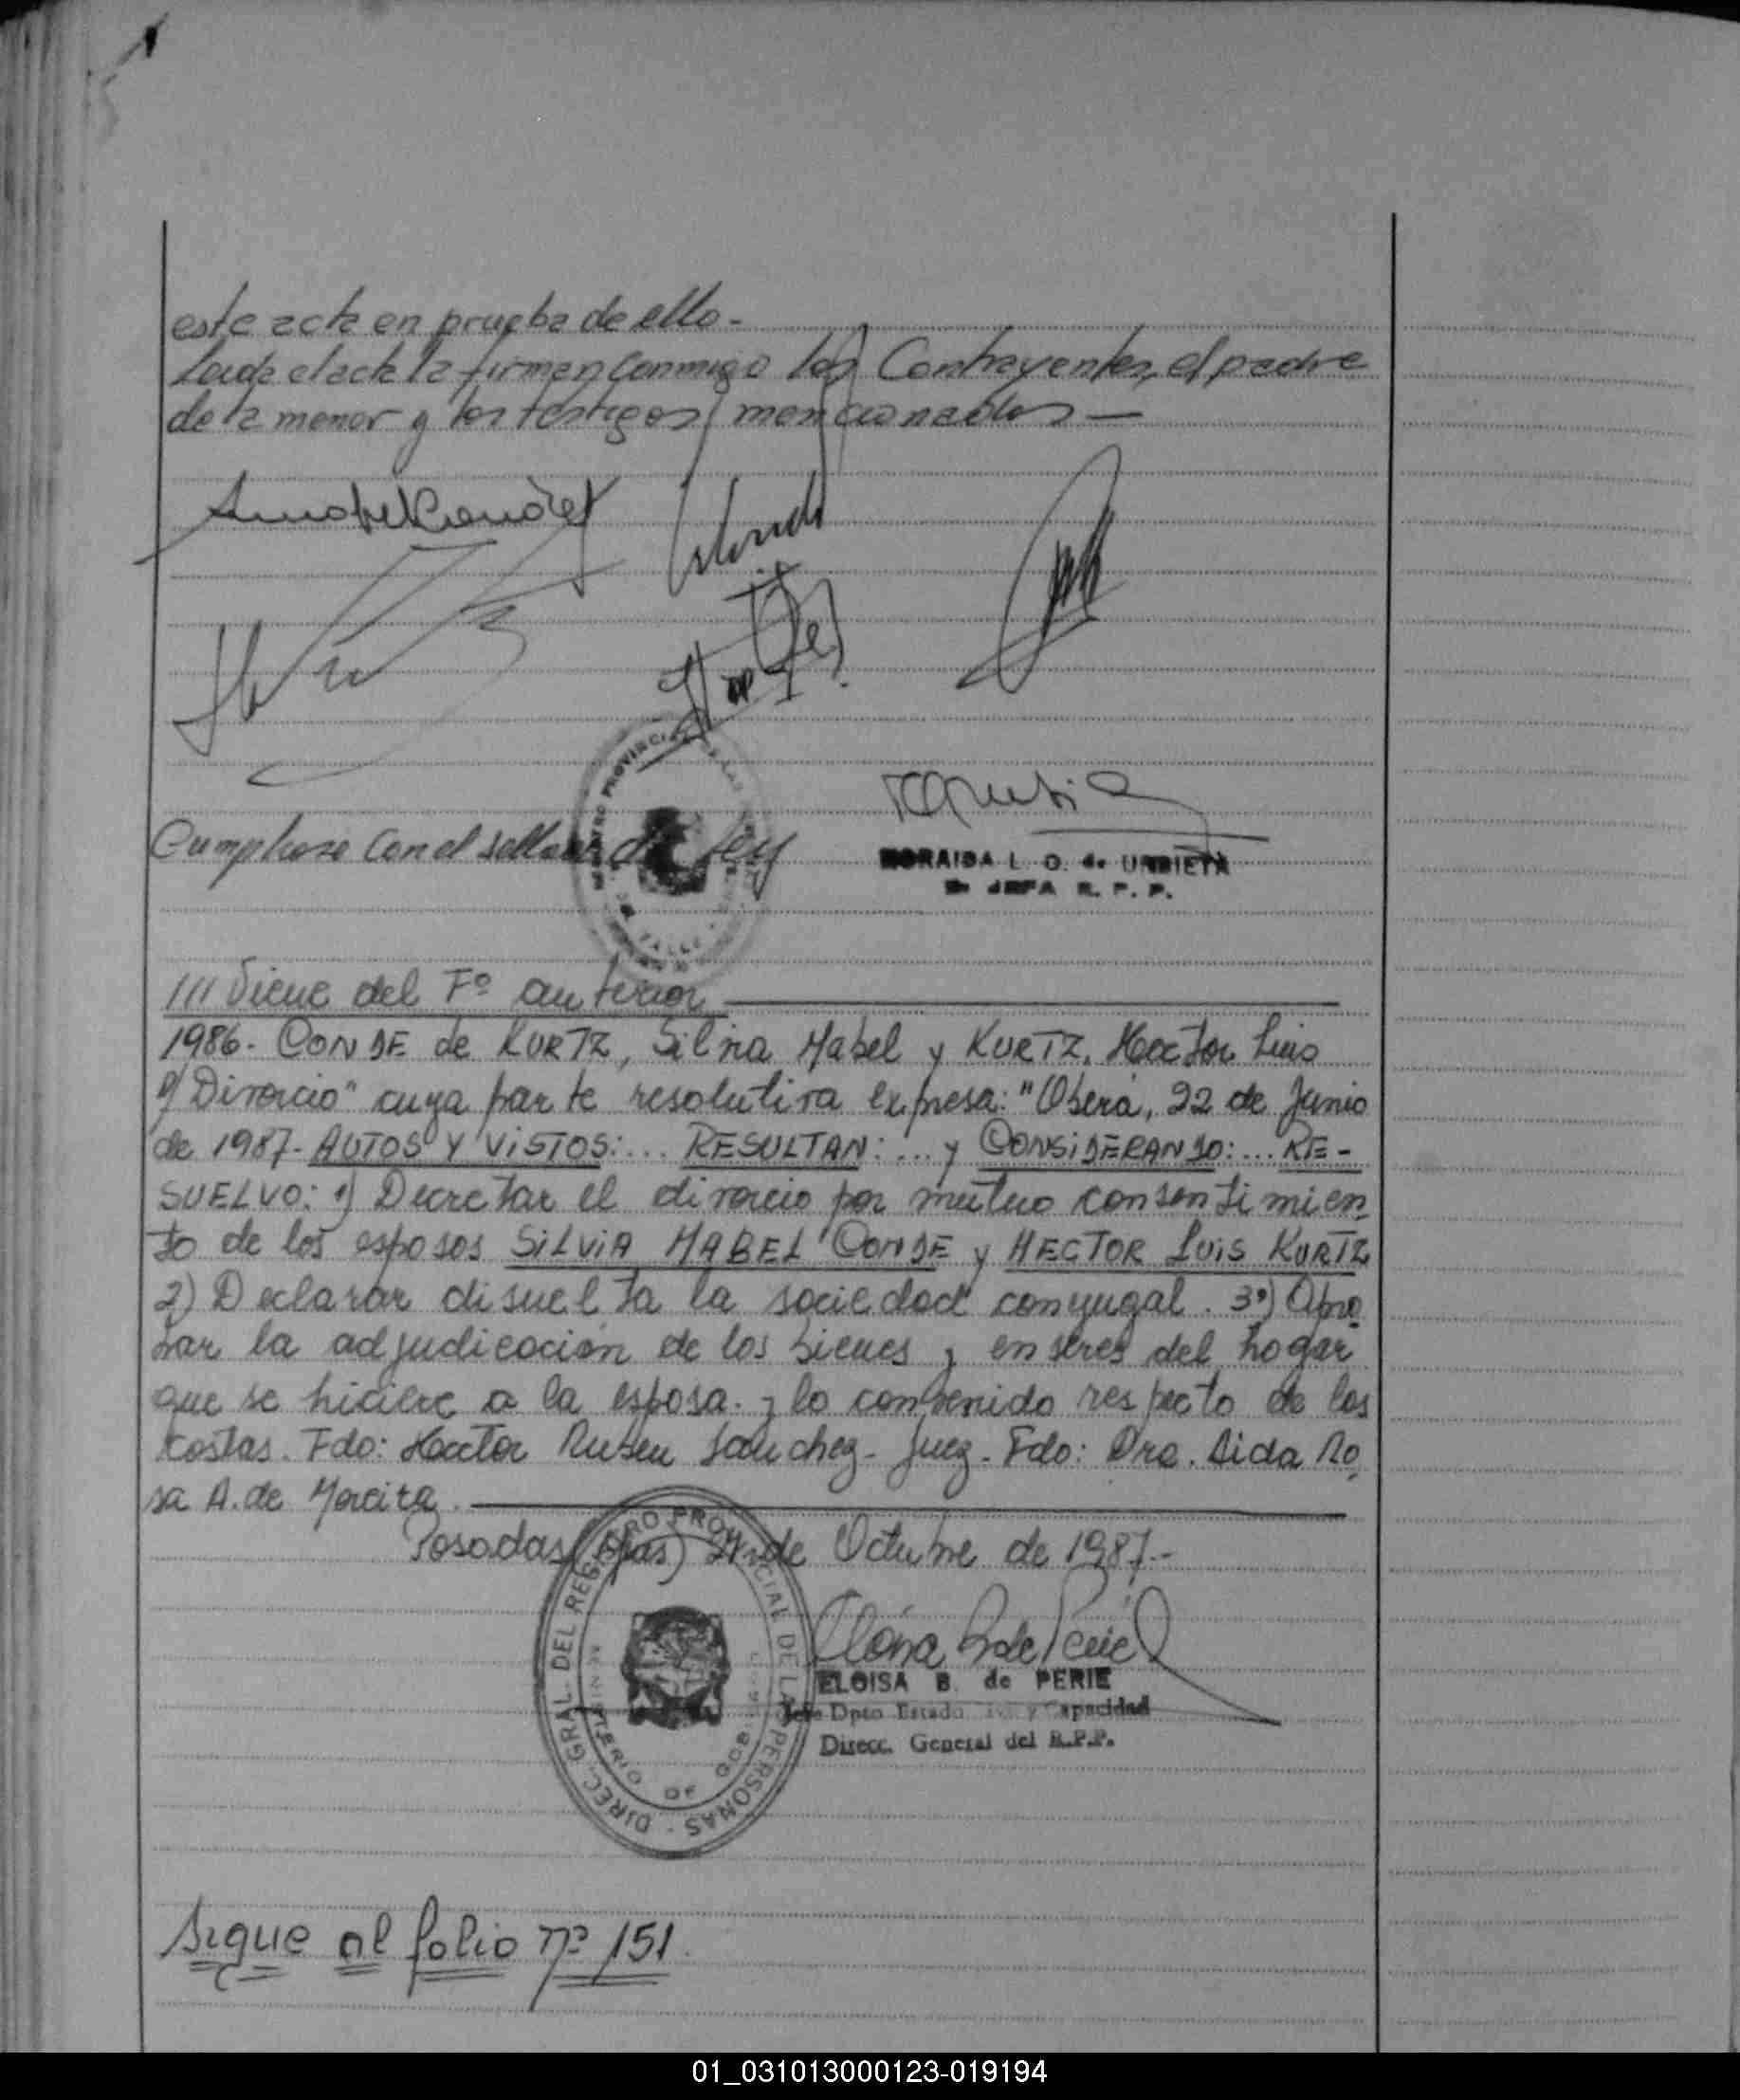 este acta en prueba de ello-
Leida el acta la firman conmigo los Contrayentes, el padre
de la menor y los testigos mencionados —
Cumplase con el sellado de ley
ZORAIDA L. O. de URBIETA
JEFA R. P. P.
/// Viene del Fº anterior
1986- CONDE de KURTZ, Silvia Mabel y KURTZ, Hector Luis
s/Divorcio" cuya parte resolutiva expresa: "Oberá, 22 de Junio
de 1987- AUTOS Y VISTOS: ... RESULTAN: ... y CONSIDERANDO: ... RE-
SUELVO: 1) Decretar el divorcio por mutuo consentimien-
to de los esposos SILVIA MABEL CONDE y HECTOR LUIS KURTZ
2) Declarar disuelta la sociedad conyugal. 3º) Apro-
bar la adjudicación de los bienes y enseres del hogar
que se hiciere a la esposa y lo convenido respecto de las
costas. Fdo: Hector Ruben Sanchez- Juez- Fdo: Dra. Aida Ro-
sa A. de
Posadas (Mnes) de Octubre de 1987.-
DIREC. GRAL. DEL REGISTRO PROVINCIAL DE LAS PERSONAS -
MINISTERIO DE GOB
ELOISA B. de PERIE
Jefe Dpto Estado y Capacidad
Direcc. General del R.P.P.
Sigue al folio nº 151.
01_031013000123-019194